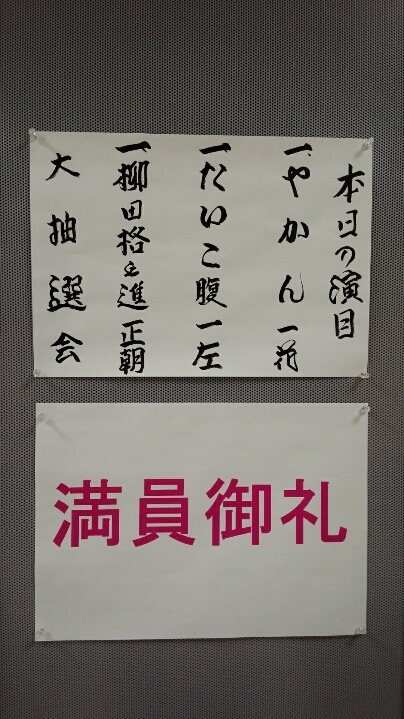 本日の演目
一、やかん 一花
一、たいこ腹 一左
一、柳田格之進 正朝
大抽選会
満員御礼